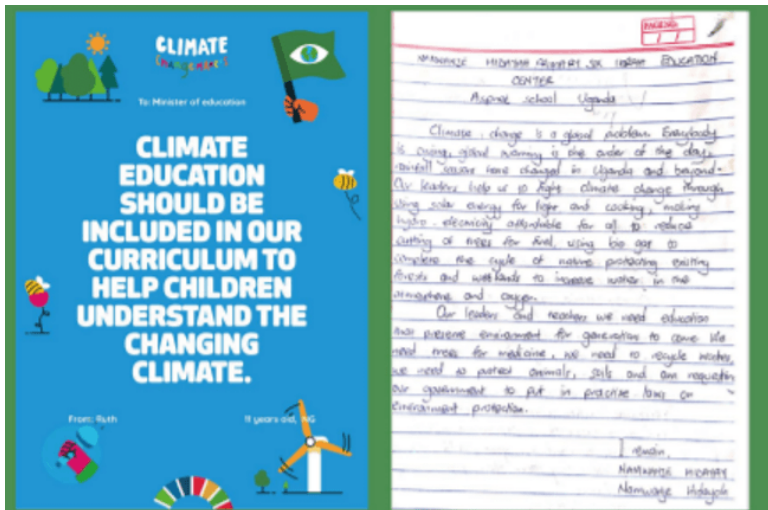 CLIMATE
Changemakers
To: Minister of education
CLIMATE
EDUCATION
SHOULD BE
INCLUDED IN OUR
CURRICULUM TO
HELP CHILDREN
UNDERSTAND THE
CHANGING
CLIMATE.
From: Ruth
11 years old,
HIDAYAH PRIMARY SIX EDUCATION
CENTER
school Uganda
Climate change is a global problem. Everybody
is crying, global warming is the order of the day,
rainfall have changed in Uganda and beyond.
Our leaders help us to fight climate change through
using solar energy for light and cooking, making
hydro-electricity affordable for all to reduce
cutting of trees for fuel, using bio gas to
complete the cycle of nature protecting existing
forests and wetlands to increase water in the
atmosphere and oxygen.
Our leaders and teachers we need education
that preserve environment for generation to come. We
need trees for medicine, we need to recycle
we need to protect animals, soils and am requesting
our government to put in practise laws on
environment protection.
I remain,